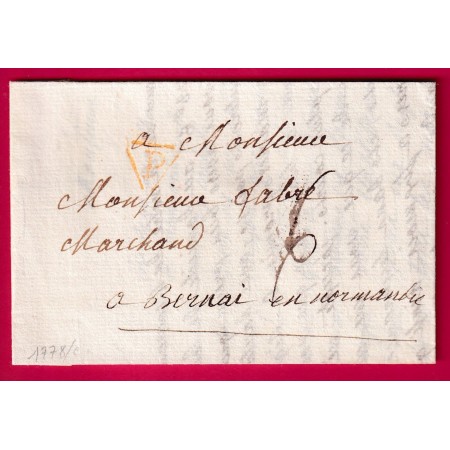 a Monsieur
P
Monsieur fabré
Marchand
6
a Bernai en normandie
1778/